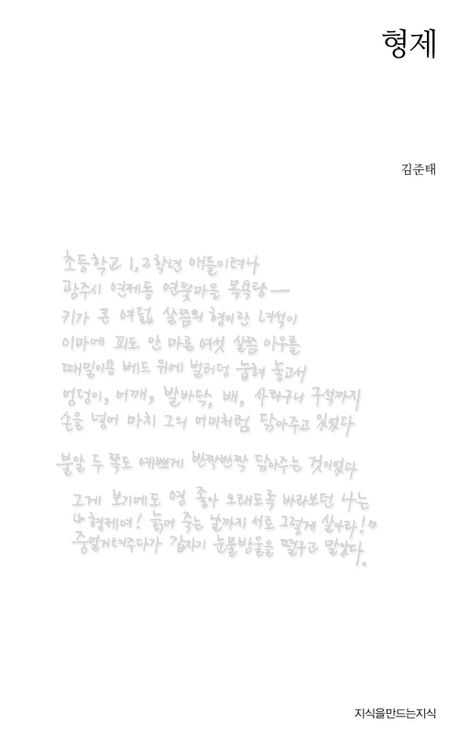 형제
김준태
초등학교 1, 2학년 애들이려나
광주시 연제동 연꽃마을 목욕탕―
키가 큰 여덟 살쯤의 형이란 녀석이
이마에 피도 안 마른 여섯 살쯤 아우를
때밀이용 베드 위에 벌러덩 눕혀 놓고서
엉덩이, 어깨, 발바닥, 배, 사타구니 구석까지
손을 넣어 마치 그의 어미처럼 닦아주고 있었다
불알 두 쪽도 예쁘게 반짝반짝 닦아주는 것이었다
그게 보기에도 영 좋아 오래도록 바라보던 나는
"형제여! 늙어 죽는 날까지 서로 그렇게 살아라!"
중얼거려주다가 갑자기 눈물방울을 떨구고 말았다.
지식을만드는지식